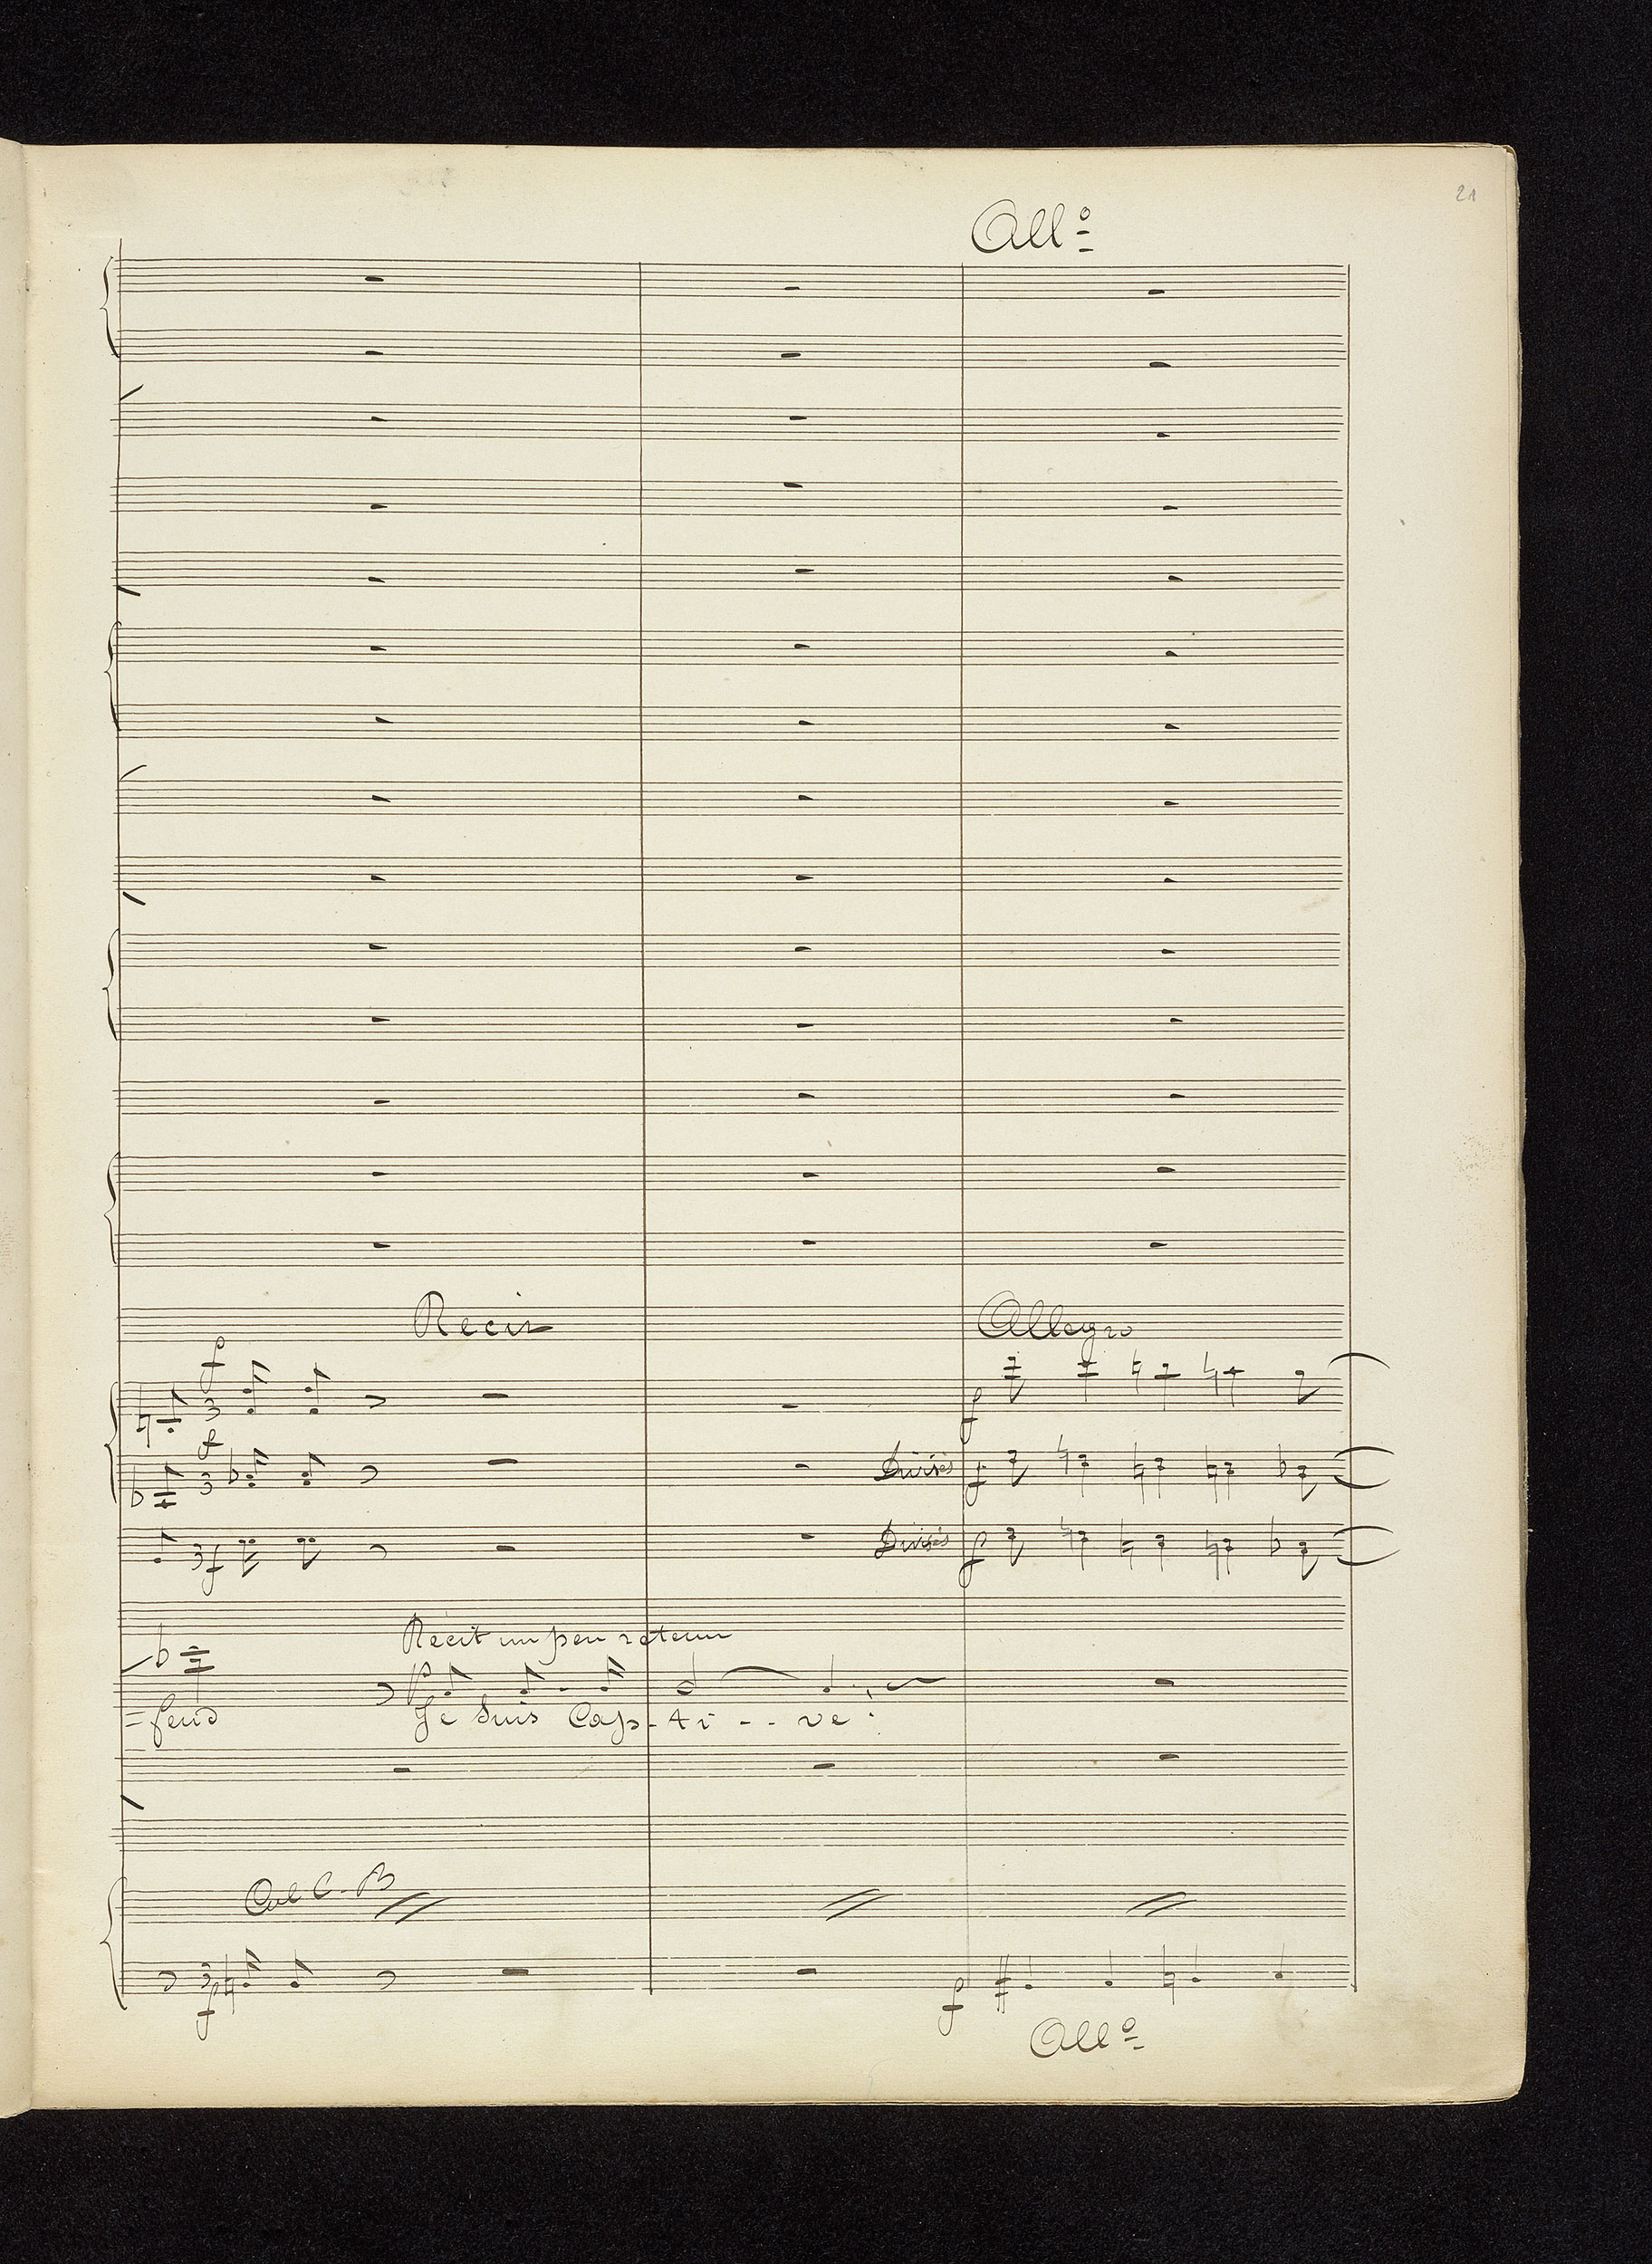 21
All°
Récit
Allegro
f
3
f
3
f
Divisés f
3 f
Divisés f
Récit un peu retenu
p
= fend Je suis Cap - ti - - ve :
Col C-B
3
f
f
All°